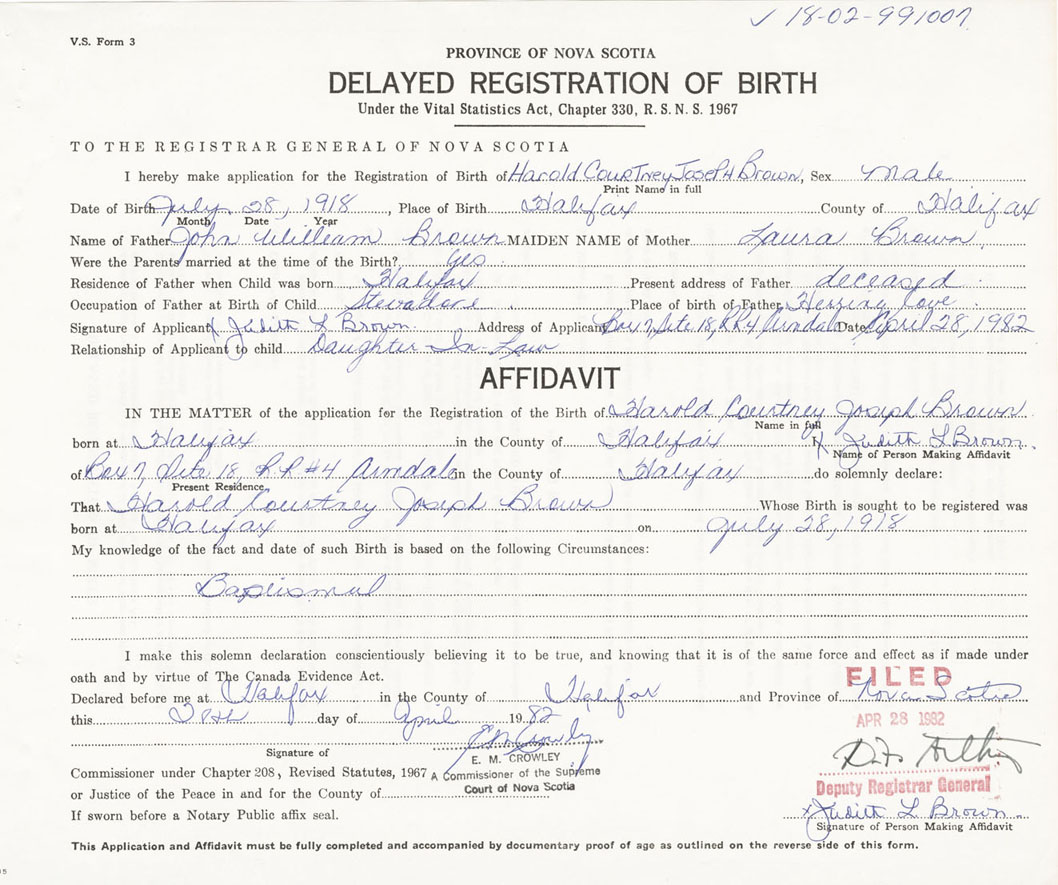 ✓ 18-02-991007
V.S. Form 3
PROVINCE OF NOVA SCOTIA
DELAYED REGISTRATION OF BIRTH
Under the Vital Statistics Act, Chapter 330, R. S. N. S. 1967
TO THE REGISTRAR GENERAL OF NOVA SCOTIA
I hereby make application for the Registration of Birth of Harold Courtney Joseph Brown, Sex Male
Print Name in full
Date of Birth July 28, 1918, Place of Birth Halifax County of Halifax
Month Date Year
Name of Father John William Brown MAIDEN NAME of Mother Laura Brown
Were the Parents married at the time of the Birth? Yes
Residence of Father when Child was born Halifax Present address of Father deceased
Occupation of Father at Birth of Child Stevadore Place of birth of Father Herring Cove
Signature of Applicant X Judith L Brown Address of Applicant Box 7, Site 18, RR4 Armdale Date April 28, 1982
Relationship of Applicant to child Daughter-In-Law
AFFIDAVIT
IN THE MATTER of the application for the Registration of the Birth of Harold Courtney Joseph Brown
Name in full
born at Halifax in the County of Halifax X Judith L Brown
Name of Person Making Affidavit
of Box 7, Site 18, R.R #4 Armdale in the County of Halifax do solemnly declare:
Present Residence
That Harold Courtney Joseph Brown Whose Birth is sought to be registered was
born at Halifax on July 28, 1918
My knowledge of the fact and date of such Birth is based on the following Circumstances:
Baptismal
I make this solemn declaration conscientiously believing it to be true, and knowing that it is of the same force and effect as if made under
oath and by virtue of The Canada Evidence Act.
FILED
Declared before me at Halifax in the County of Halifax and Province of Nova Scotia
this 28th day of April 1982
APR 28 1982
E M Crowley
Signature of
E. M. CROWLEY
Commissioner under Chapter 208, Revised Statutes, 1967 A Commissioner of the Supreme
Court of Nova Scotia
Deputy Registrar General
or Justice of the Peace in and for the County of
If sworn before a Notary Public affix seal.
X Judith L Brown
Signature of Person Making Affidavit
This Application and Affidavit must be fully completed and accompanied by documentary proof of age as outlined on the reverse side of this form.